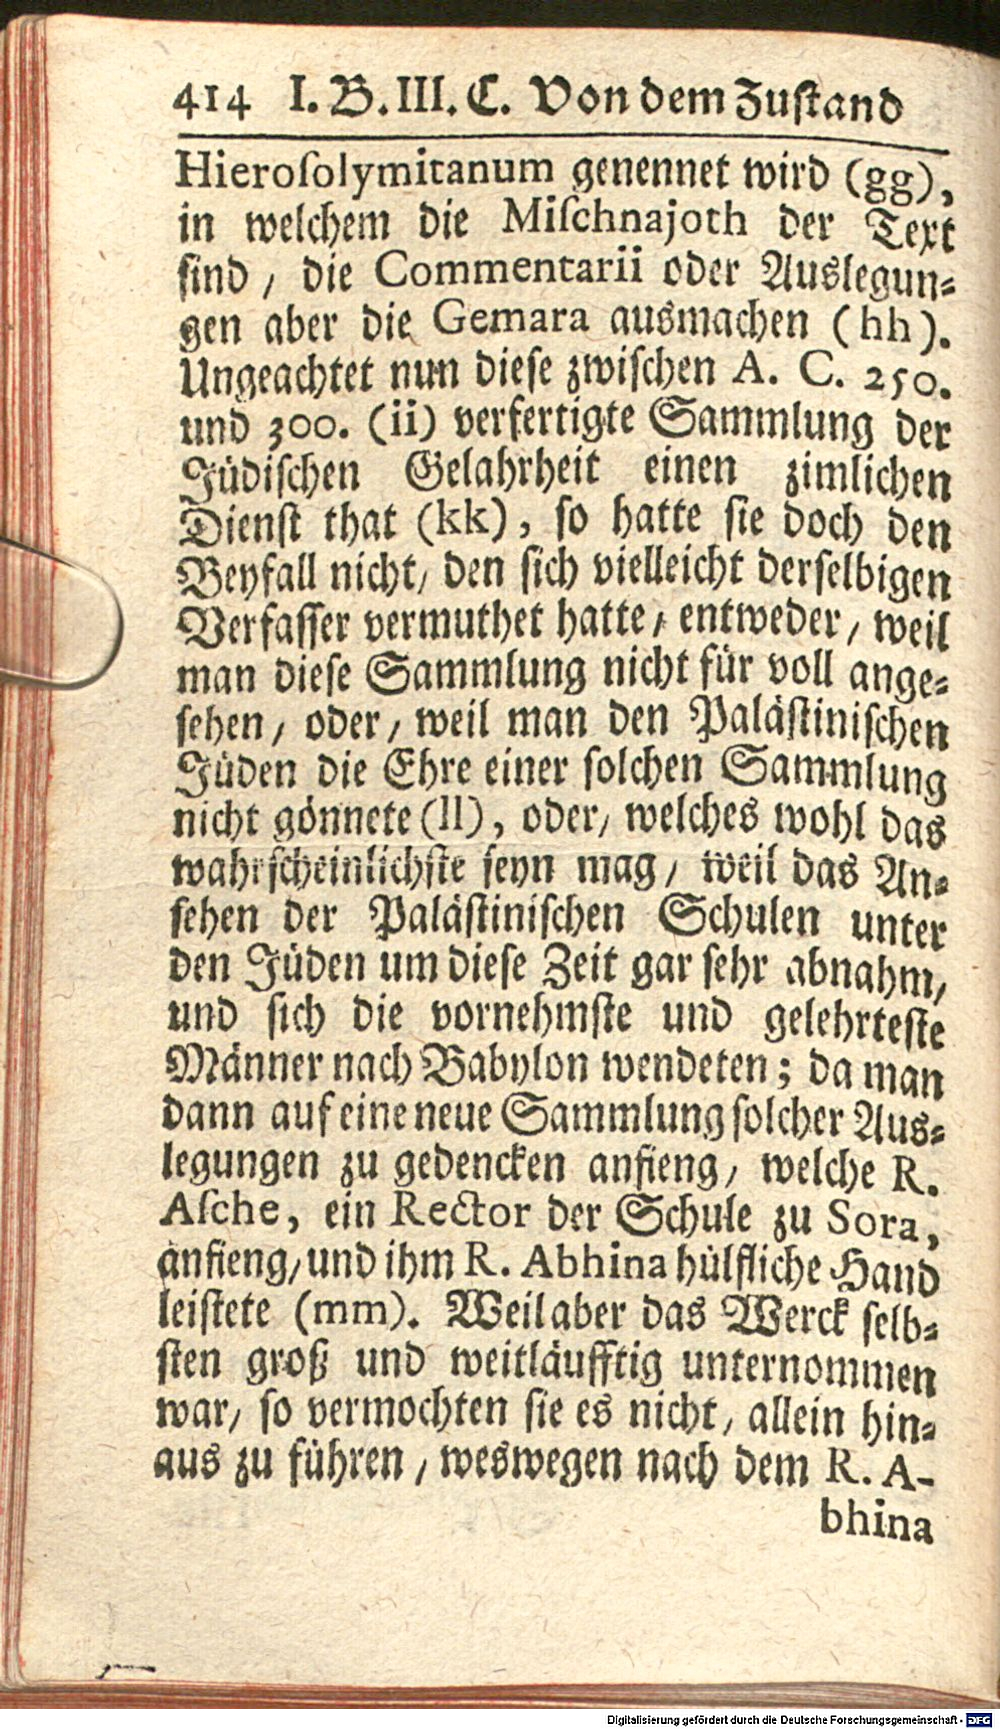 414 I. B. III. C. Von dem Zustand
Hierosolymitanum genennet wird (gg),
in welchem die Mischnajoth der Text
sind / die Commentarii oder Auslegun-
gen aber die Gemara ausmachen (hh).
Ungeachtet nun diese zwischen A. C. 250.
und 300. (ii) verfertigte Sammlung der
Jüdischen Gelahrheit einen zimlichen
Dienst that (kk), so hatte sie doch den
Beyfall nicht / den sich vielleicht derselbigen
Verfasser vermuthet hatte / entweder / weil
man diese Sammlung nicht für voll ange-
sehen / oder / weil man den Palästinischen
Jüden die Ehre einer solchen Sammlung
nicht gönnete (ll), oder / welches wohl das
wahrscheinlichste seyn mag / weil das An-
sehen der Palästinischen Schulen unter
den Jüden um diese Zeit gar sehr abnahm /
und sich die vornehmste und gelehrteste
Männer nach Babylon wendeten; da man
dann auf eine neue Sammlung solcher Aus-
legungen zu gedencken anfieng / welche R.
Asche, ein Rector der Schule zu Sora,
anfieng / und ihm R. Abhina hülfliche Hand
leistete (mm). Weil aber das Werck selb-
sten groß und weitläufftig unternommen
war / so vermochten sie es nicht / allein hin-
aus zu führen / weswegen nach dem R. A-
bhina
Digitalisierung gefördert durch die Deutsche Forschungsgemeinschaft - DFG